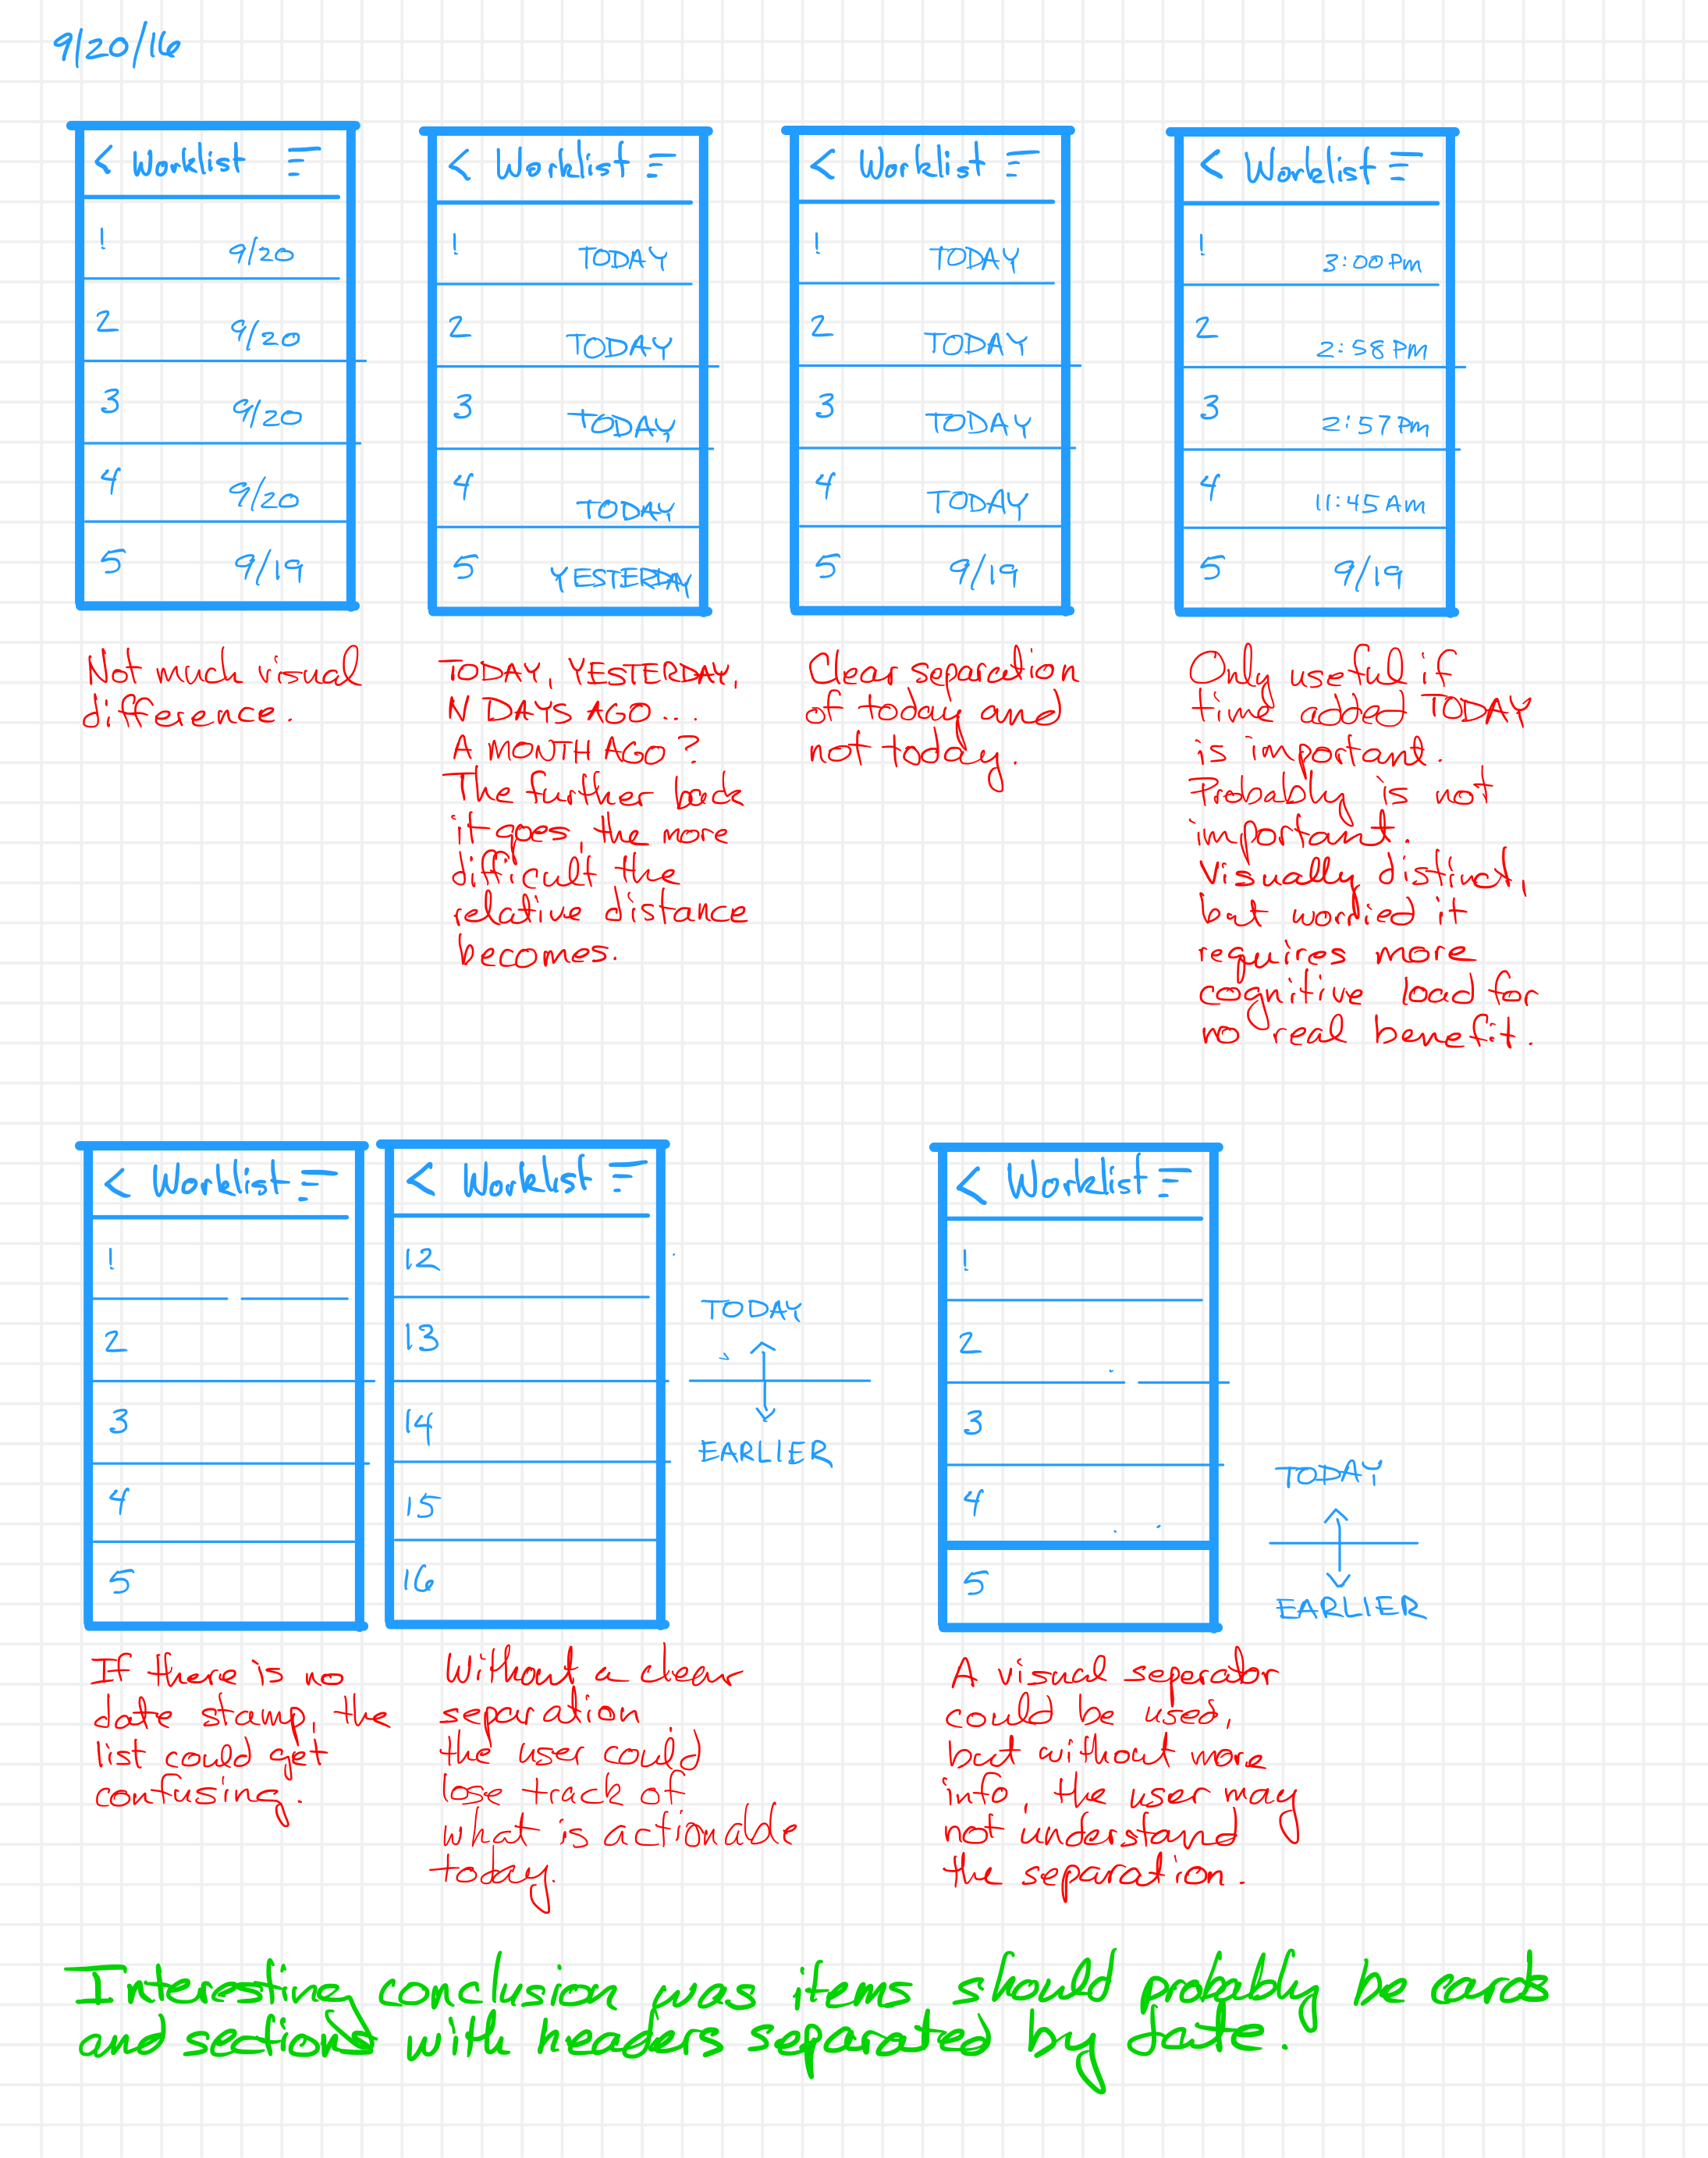 9/20/16
< Worklist
1 9/20
2 9/20
3 9/20
4 9/20
5 9/19
Not much visual
difference.
< Worklist
1 TODAY
2 TODAY
3 TODAY
4 TODAY
5 YESTERDAY
TODAY, YESTERDAY,
N DAYS AGO...
A MONTH AGO?
The further back
it goes, the more
difficult the
relative distance
becomes.
< Worklist
1 TODAY
2 TODAY
3 TODAY
4 TODAY
5 9/19
Clear separation
of today and
not today.
< Worklist
1 3:00 PM
2 2:58 PM
3 2:57 PM
4 11:45 AM
5 9/19
Only useful if
time added TODAY
is important.
Probably is not
important.
Visually distinct,
but worried it
requires more
cognitive load for
no real benefit.
< Worklist
1
2
3
4
5
If there is no
date stamp, the
list could get
confusing.
< Worklist
12
13
14
15
16
TODAY
EARLIER
Without a clear
separation
the user could
lose track of
what is actionable
today.
< Worklist
1
2
3
4
5
TODAY
EARLIER
A visual seperator
could be used,
but without more
info, the user may
not understand
the separation.
Interesting conclusion was items should probably be cards
and sections with headers separated by date.